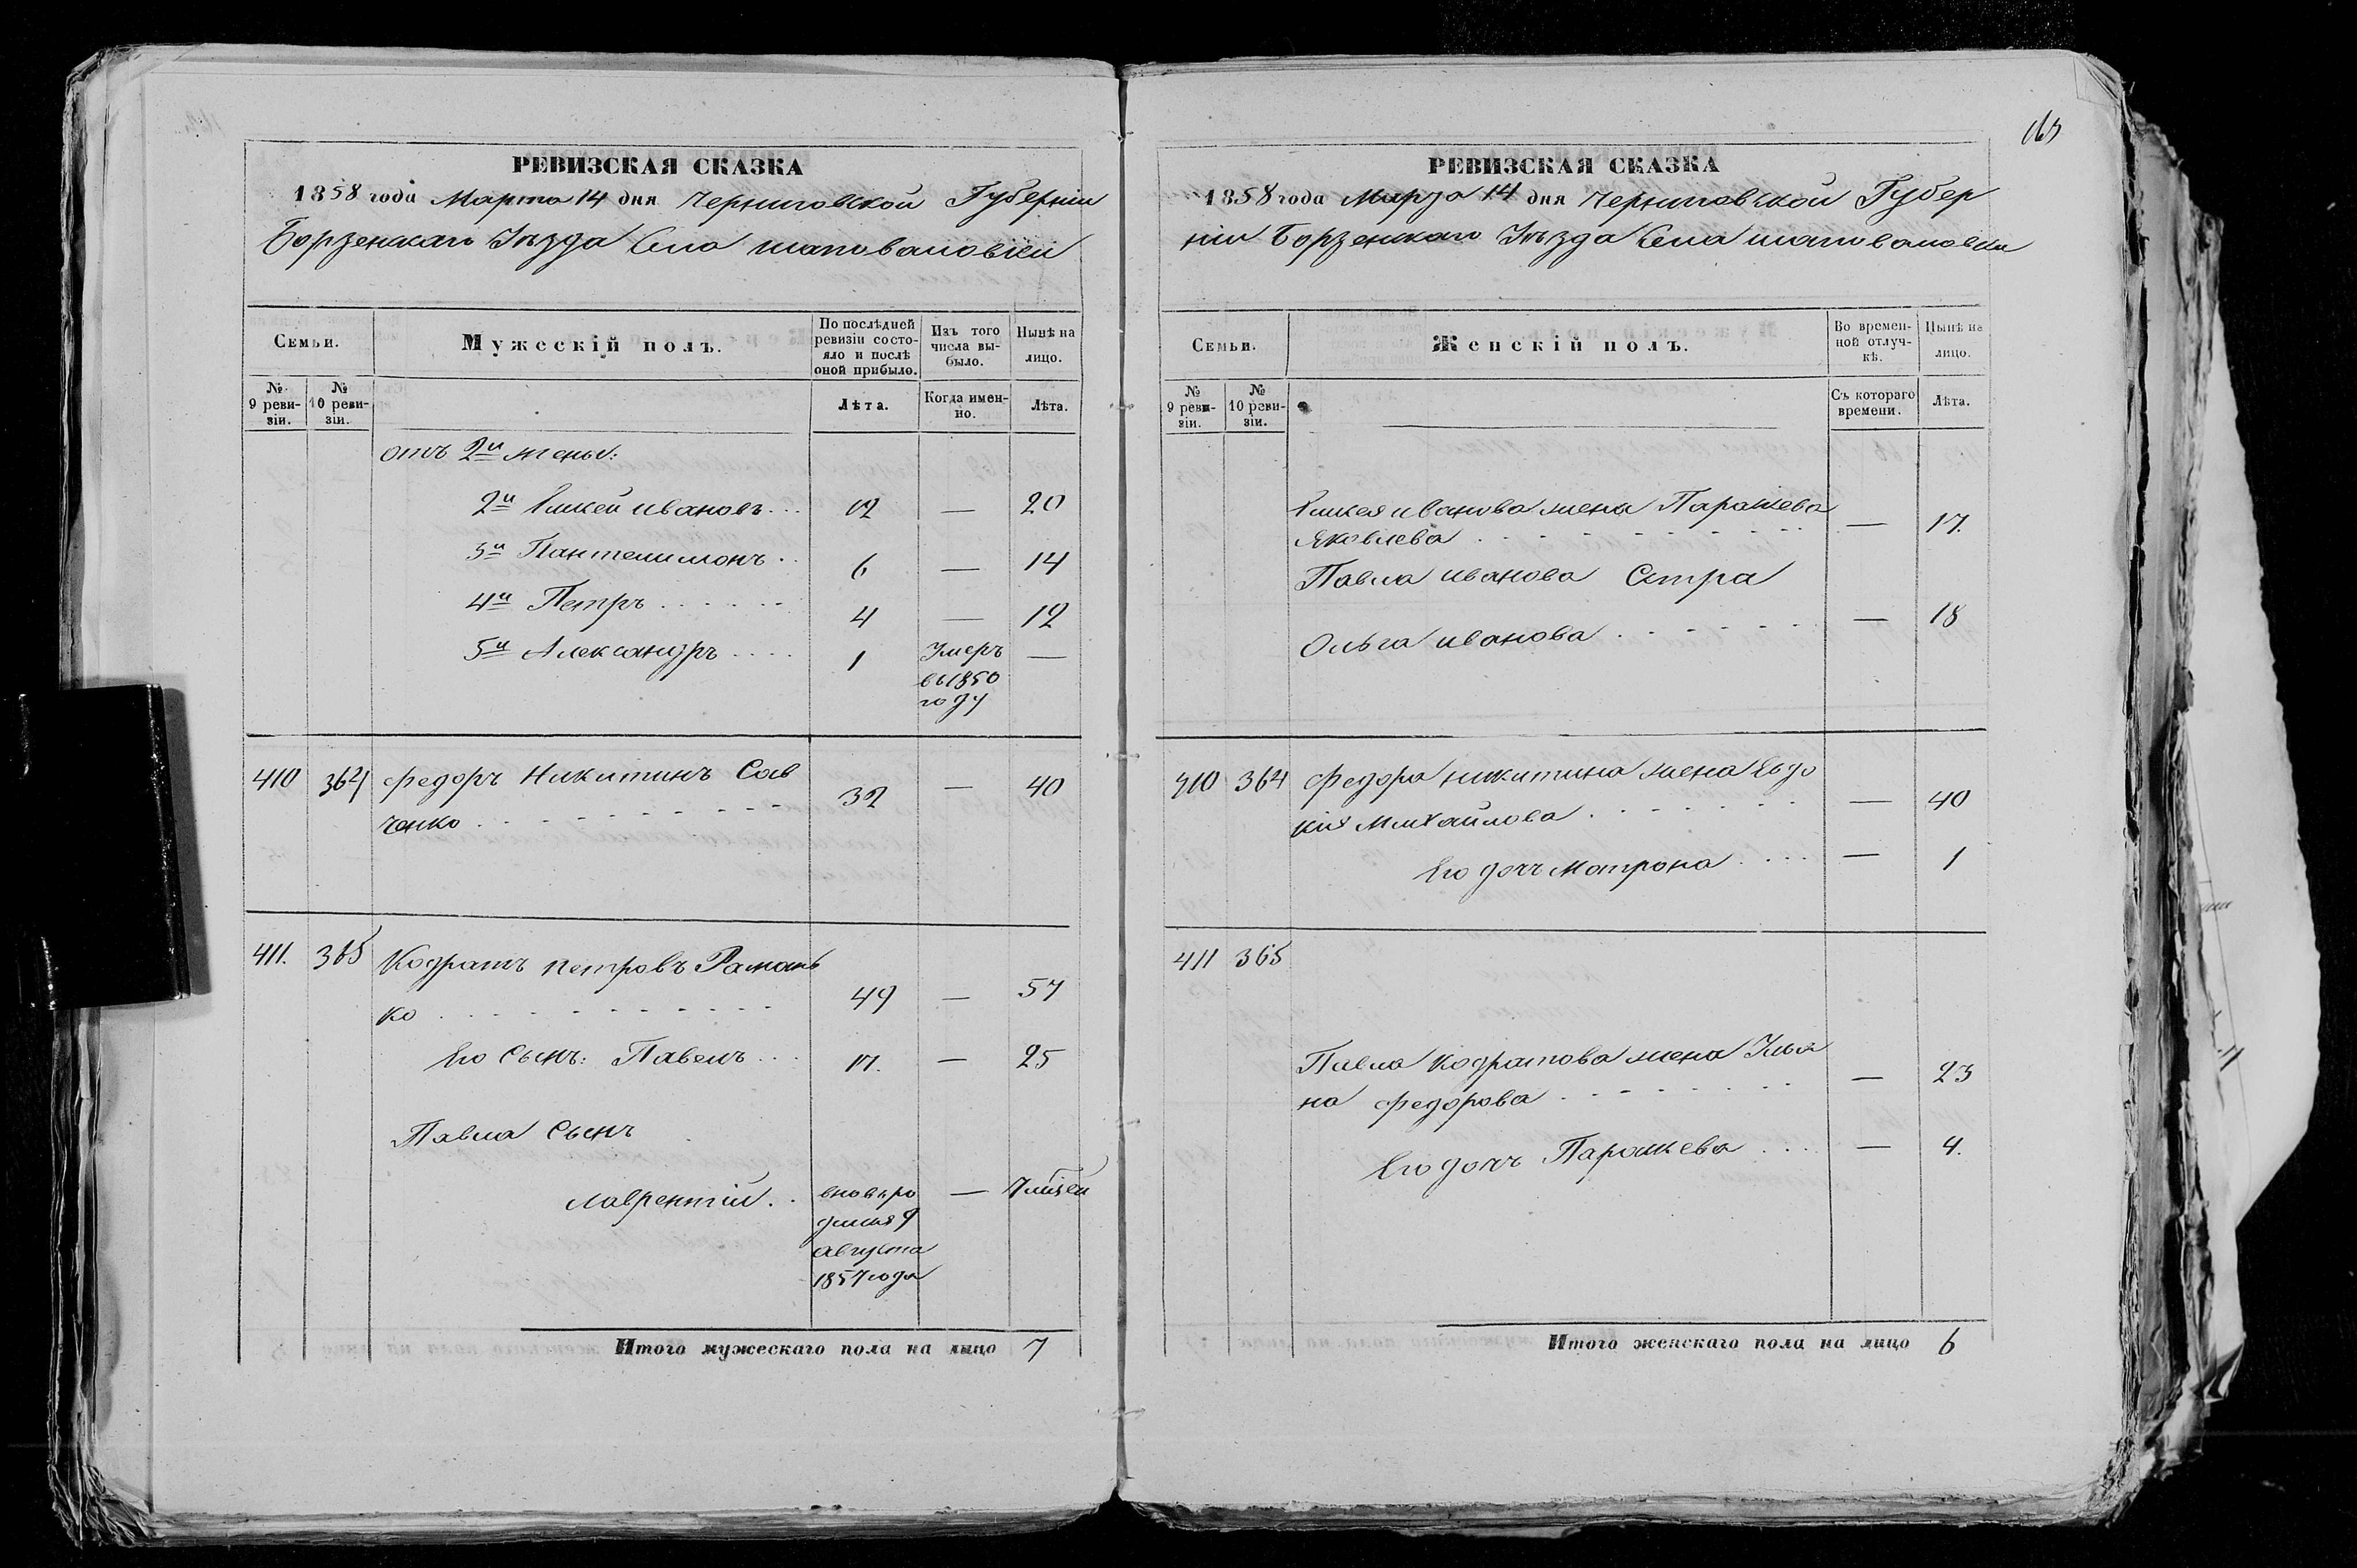 РЕВИЗСКАЯ СКАЗКА
1858 года Марта 14 дня Черниговской Губерніи
Борзенскаго Уѣзда Села Шаповаловки
Семьи.
Мужескій полъ.
По послѣдней ревизіи состояло и послѣ оной прибыло.
Изъ того числа выбыло.
Нынѣ на лицо.
№ 9 ревизіи.
№ 10 ревизіи.
Лѣта.
Когда именно.
Лѣта.
отъ 2й жены:
2й Ивановъ... 12 — 20
3й Пантелимонъ.. 6 — 14
4й Петръ...... 4 — 12
5й Александръ.... 1 Умеръ —
въ 1850
году
410 364 Федоръ Никитинъ Сав 32 — 40
ченко
411. 365 Кодратъ Петровъ Рамань
ко 49 — 57
Его Сынъ: Павелъ... 17. — 25
Павла Сынъ
Лаврентій.. вновь ро — 7
дился 9
августа
1857 года
Итого мужескаго пола на лицо 7
165
РЕВИЗСКАЯ СКАЗКА
1858 года Марта 14 дня Черниговской Губер
ніи Борзенскаго Уѣзда Села Шаповаловки
Семьи.
Женскій полъ.
Во временной отлучкѣ.
Нынѣ на лицо.
№ 9 ревизіи.
№ 10 ревизіи.
Съ котораго времени.
Лѣта.
Иванова жена Парашкева
Яковлева — 17.
Павла Иванова Сестра
Ольга Иванова — 18
410 364 Федора Никитина жена Евдо
кія Михайлова — 40
Его дочь Мотрона.... — 1
411 365
Павла Кодратова жена Улья
на Федорова — 23
Его дочь Парашкева.... — 4.
Итого женскаго пола на лицо 6